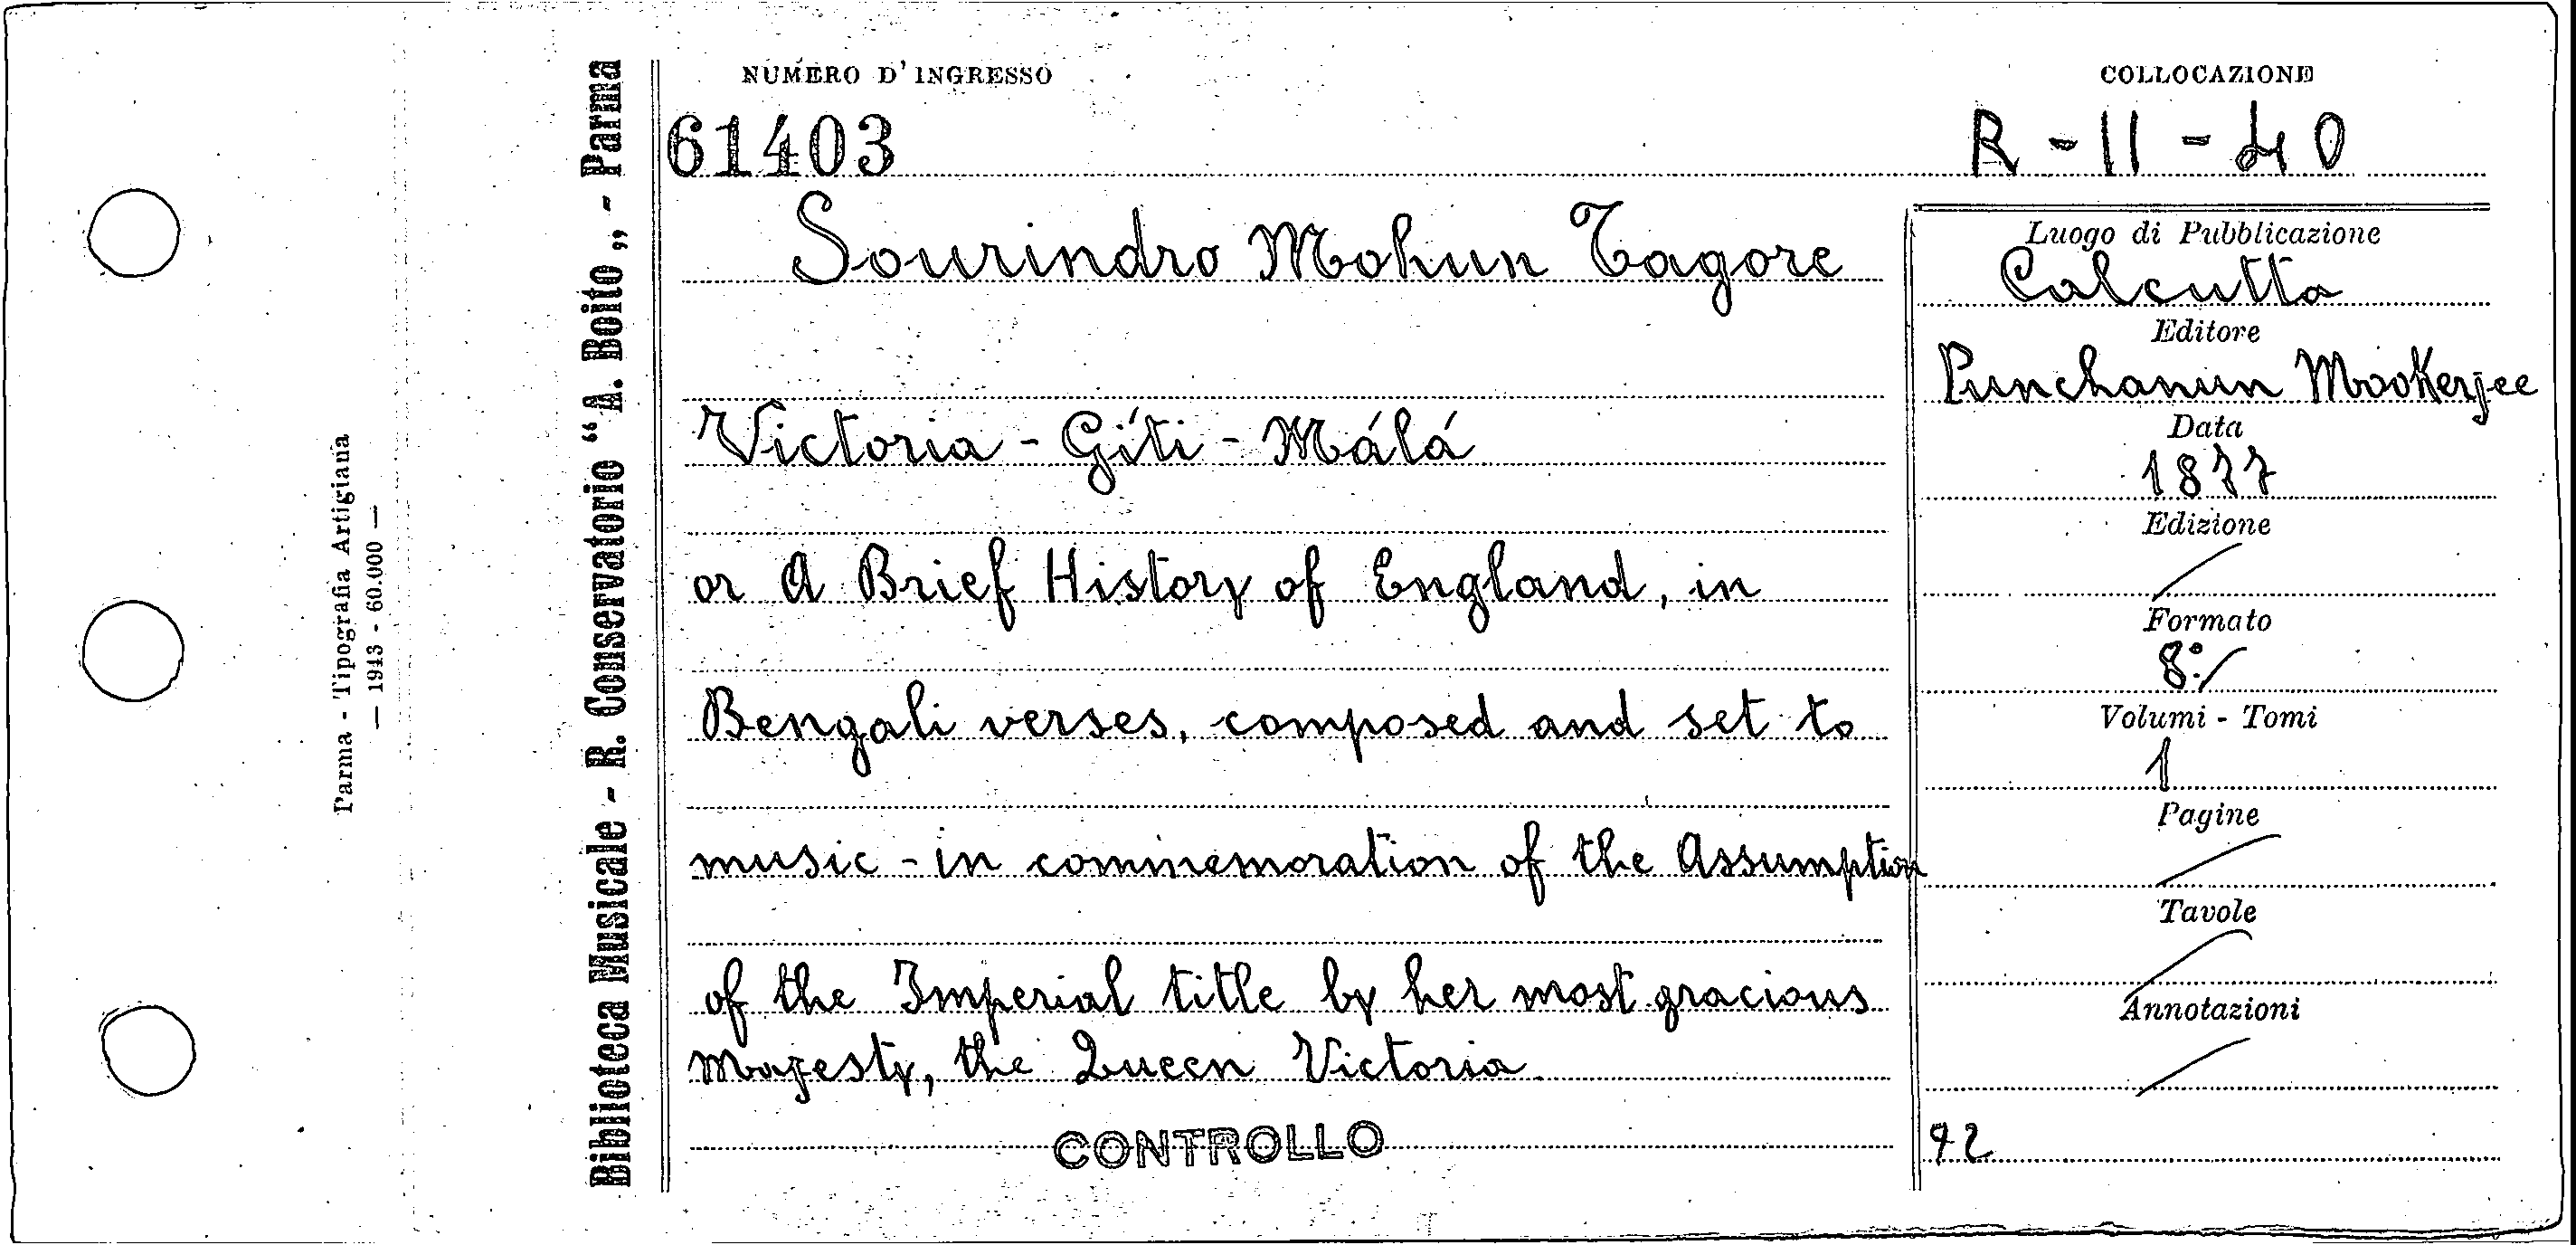 NUMERO D'INGRESSO
61403
COLLOCAZIONE
R - 11 - 40
Sourindro Mohun Tagore
Victoria - Gíti - Málá
or A Brief History of England, in
Bengali verses, composed and set to
music - in commemoration of the Assumption
of the Imperial title by her most gracious
Majesty, the Queen Victoria
CONTROLLO
Luogo di Pubblicazione
Calcutta
Editore
Punchanun Mookerjee
Data
1877
Edizione
/
Formato
8°/
Volumi - Tomi
1
Pagine
/
Tavole
/
Annotazioni
/
Biblioteca Musicale - R. Conservatorio “A. Boito„ - Parma
Parma - Tipografia Artigiana
— 1943 - 60.000 —